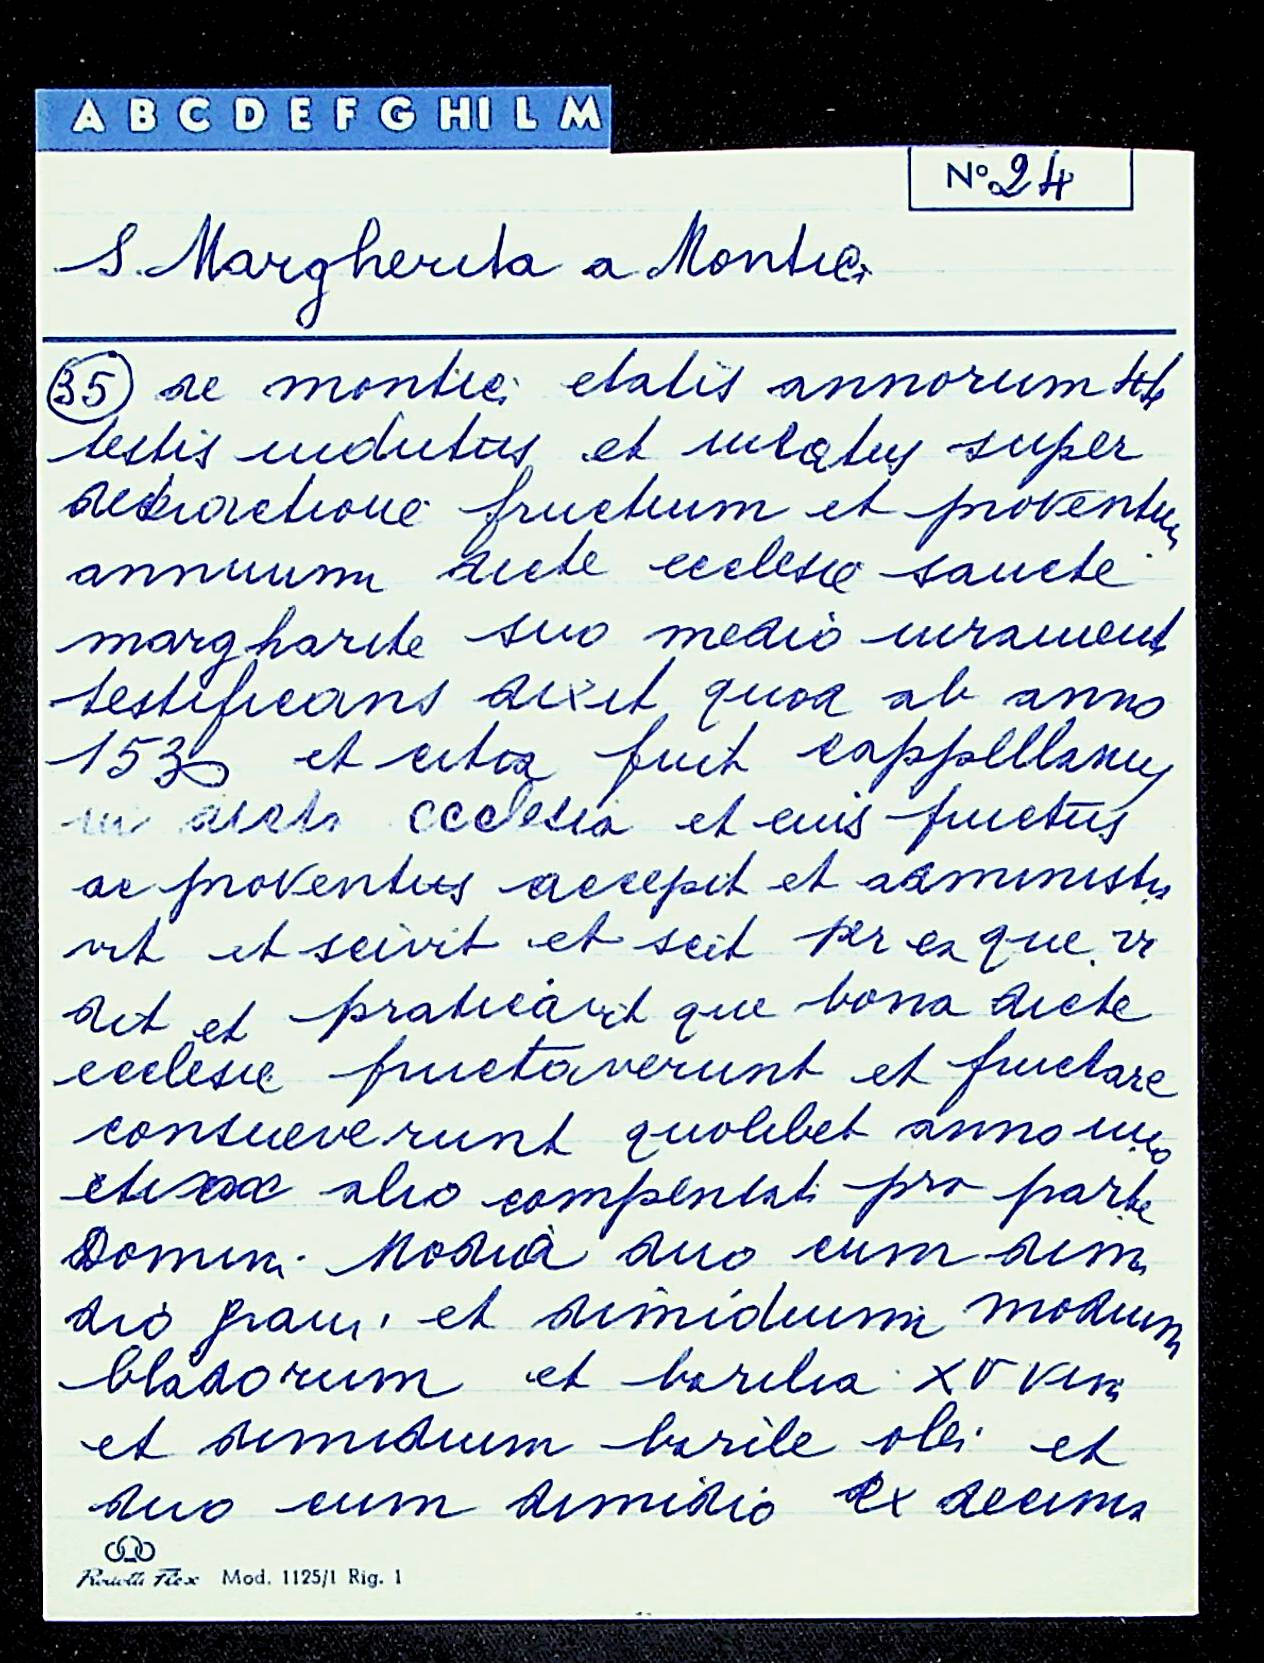 A B C D E F G HI L M
N° 24
S. Margherita a Montici
35 de montici etatis annorum
testis indutus et iuratus super
detractione fructuum et proventuu
annuum dicte ecclesie sancte
margharite suo medio iurament
testificans dixit quod ab anno
1530 et citra fuit cappellanus
in dicta ecclesia et euis fructus
ac proventus accepit et administra
vit et scivit et scit per ea que vi
dit et praticavit que bona dicte
ecclesie fructaverunt et fructare
consueverunt quolibet anno uno
alio compensati pro parte
Domini Modia duo cum dimi
dio grani et dimidium modium
bladorum et barilia XV vini
et dimidium barile olei et
duo cum dimidio ex decima
Flex Mod. 1125/1 Rig. 1